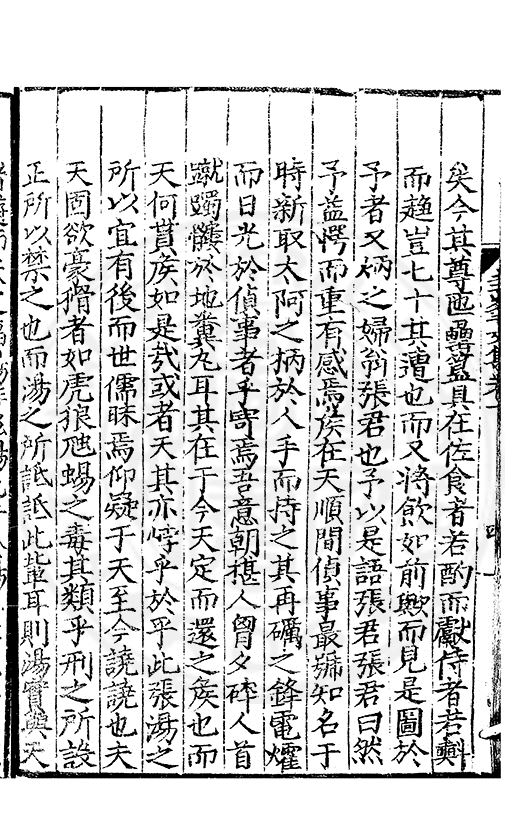 矣今其尊匜罍簋具在佐食者若酌而獻侍者若㪺
而趨豈七十其遭也而又將飲如前歟而見是圖於
予者又炳之婦翁張君也予以是語張君張君曰然
予益愕而重有感焉矦在天順間偵事最號知名于
時新取太阿之柄於人手而持之其再礪之鋒電燿
而日光於偵事者乎寄焉吾意朝揕人胷夕碎人首
蹴躅髏於地糞丸耳其在于今天定而還之矦也而
天何貰矦如是㢤或者天其亦㟧乎於乎此張湯之
所以宜有後而世儒昧焉仰疑于天至今譊譊也夫
天固欲豪猾者如虎狼虺蜴之毒其類乎刑之所設
正所以禁之也而湯之所詆詆此輩耳則湯實與天